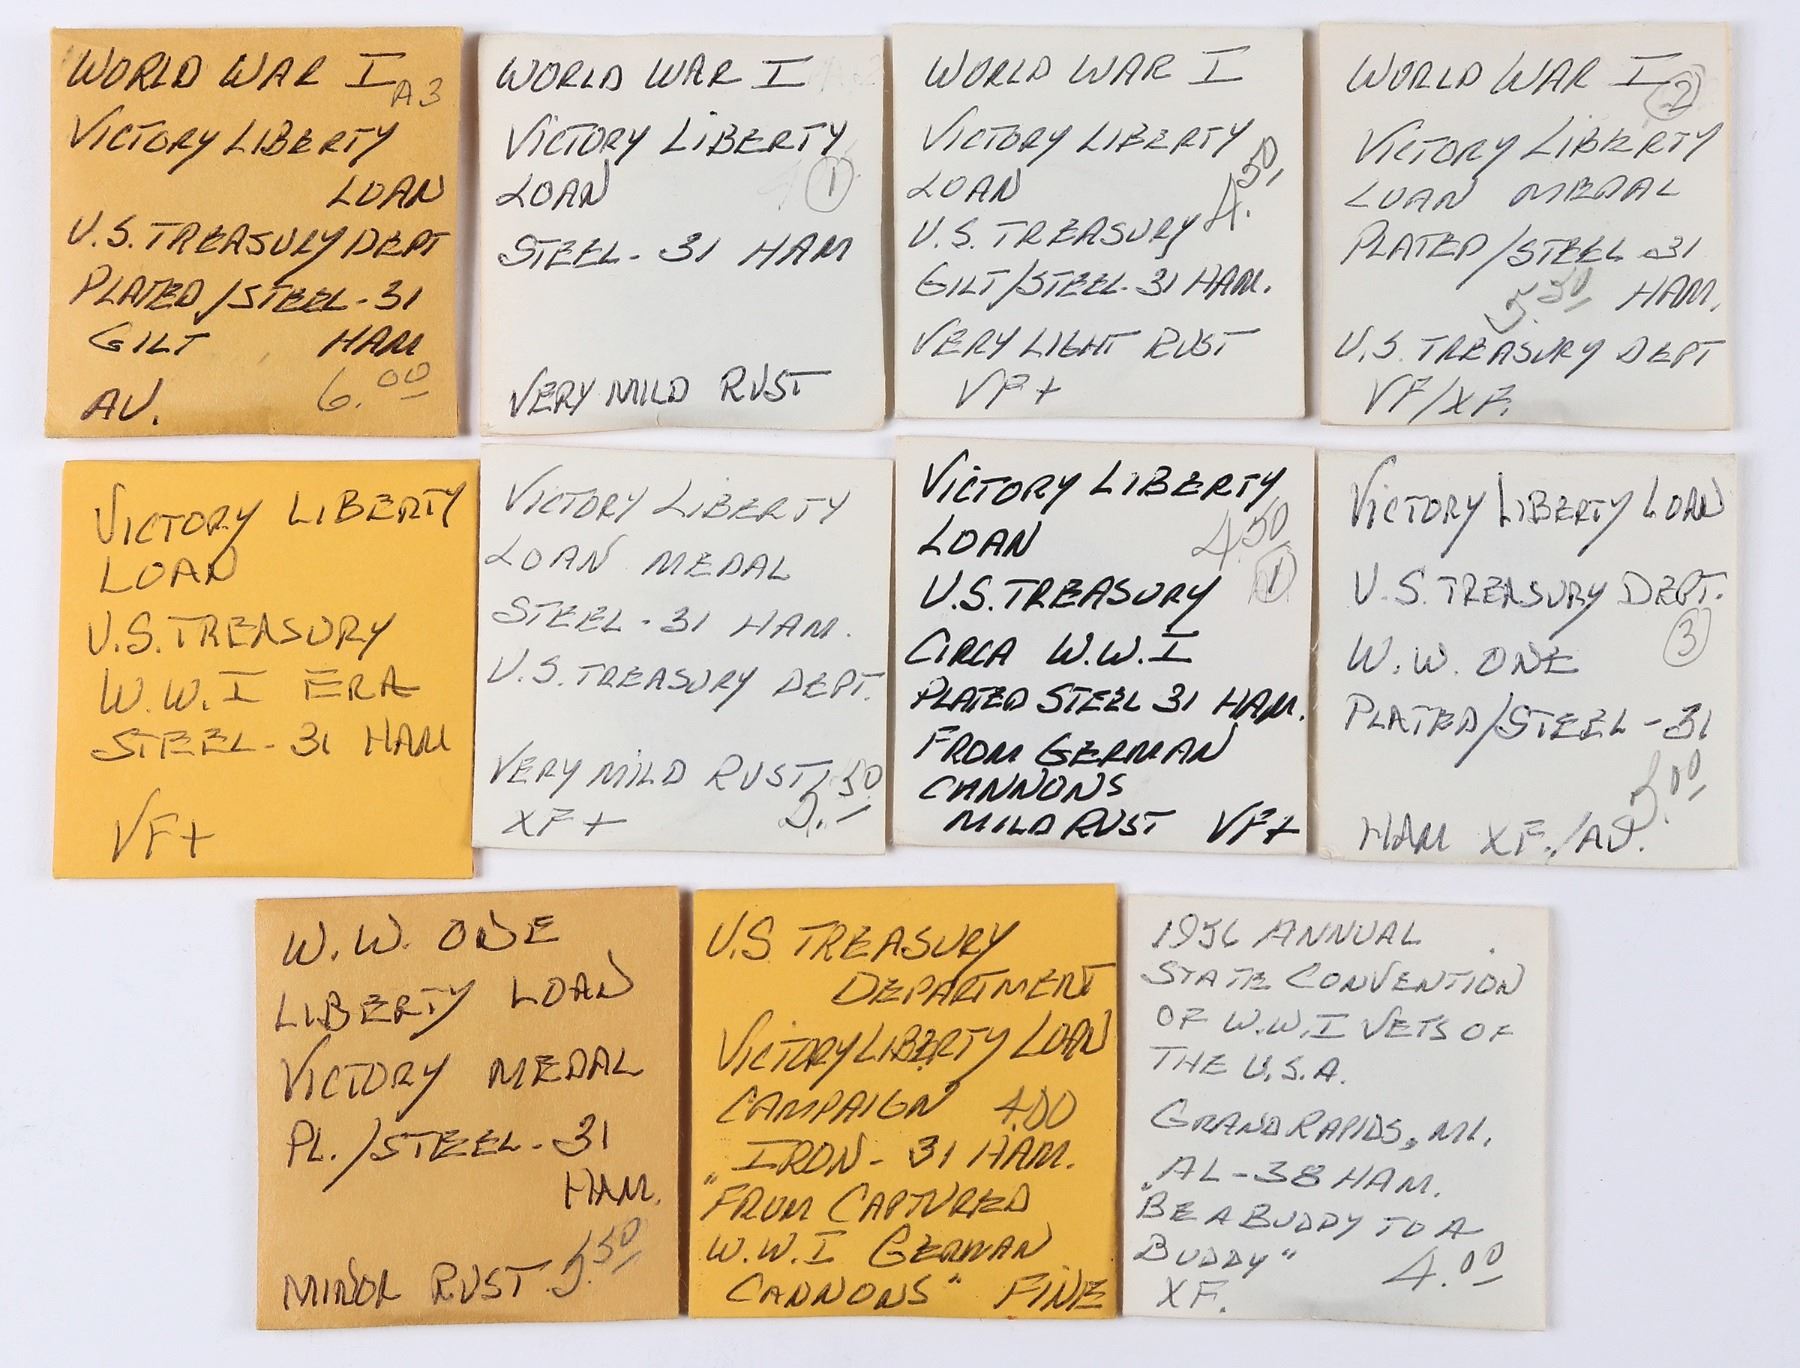 WORLD WAR I
A3
VICTORY LIBERTY
LOAN
U.S. TREASURY DEPT
PLATED/STEEL-31
GILT HAM
AU. 6.00
WORLD WAR I
VICTORY LIBERTY
LOAN 1
STEEL-31 HAM
VERY MILD RUST
WORLD WAR I
VICTORY LIBERTY
LOAN 4.50
U.S. TREASURY
GILT/STEEL-31 HAM.
VERY LIGHT RUST
VF+
WORLD WAR I
2
VICTORY LIBERTY
LOAN MEDAL
PLATED/STEEL-31
5.50 HAM.
U.S. TREASURY DEPT
VF/XF.
VICTORY LIBERTY
LOAN
U.S. TREASURY
W.W.I ERA
STEEL-31 HAM
VF+
VICTORY LIBERTY
LOAN MEDAL
STEEL-31 HAM.
U.S. TREASURY DEPT.
VERY MILD RUST
XF+
VICTORY LIBERTY
LOAN 4.50
U.S. TREASURY 1
CIRCA W.W.I
PLATED STEEL 31 HAM.
FROM GERMAN
CANNONS
MILD RUST VF+
VICTORY LIBERTY LOAN
U.S. TREASURY DEPT.
W.W. ONE 3
PLATED/STEEL-31
5.00
HAM XF./AU.
W.W. ONE
LIBERTY LOAN
VICTORY MEDAL
PL./STEEL-31
HAM.
MINOR RUST 5.50
U.S TREASURY
DEPARTMENT
VICTORY LIBERTY LOAN
CAMPAIGN 4.00
IRON-31 HAM.
"FROM CAPTURED
W.W.I GERMAN
CANNONS" FINE
1956 ANNUAL
STATE CONVENTION
OF W.W.I VETS OF
THE U.S.A.
GRAND RAPIDS, MI.
AL-38 HAM.
"BE A BUDDY TO A
BUDDY"
XF. 4.00